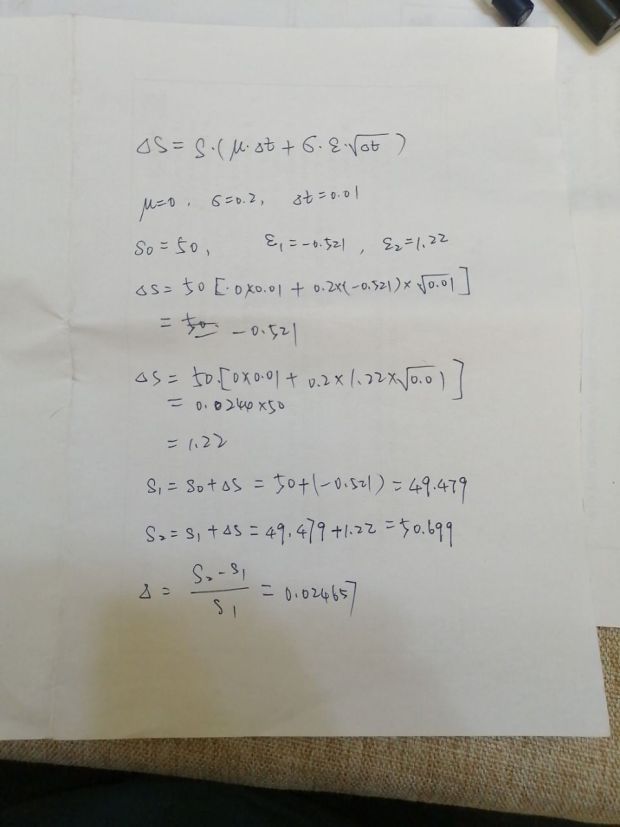 ΔS = S·(μ·Δt + σ·ε·√Δt )
μ=0 , σ=0.2, Δt=0.01
S0 = 50, ε1=-0.521 , ε2=1.22
ΔS = 50 [·0×0.01 + 0.2×(-0.521)×√0.01]
= 50 -0.521
ΔS = 50.[0×0.01 + 0.2×1.22×√0.01]
= 0.0244×50
= 1.22
S1 = S0+ΔS = 50+(-0.521) = 49.479
S2 = S1 + ΔS = 49.479+1.22 = 50.699
Δ = (S2-S1)/S1 = 0.024657